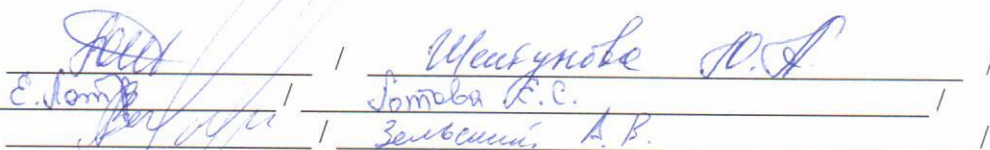 / Шептунова Ю.А. /
Е.Лотова / Лотова Е.С. /
/ Зельский А.В. /